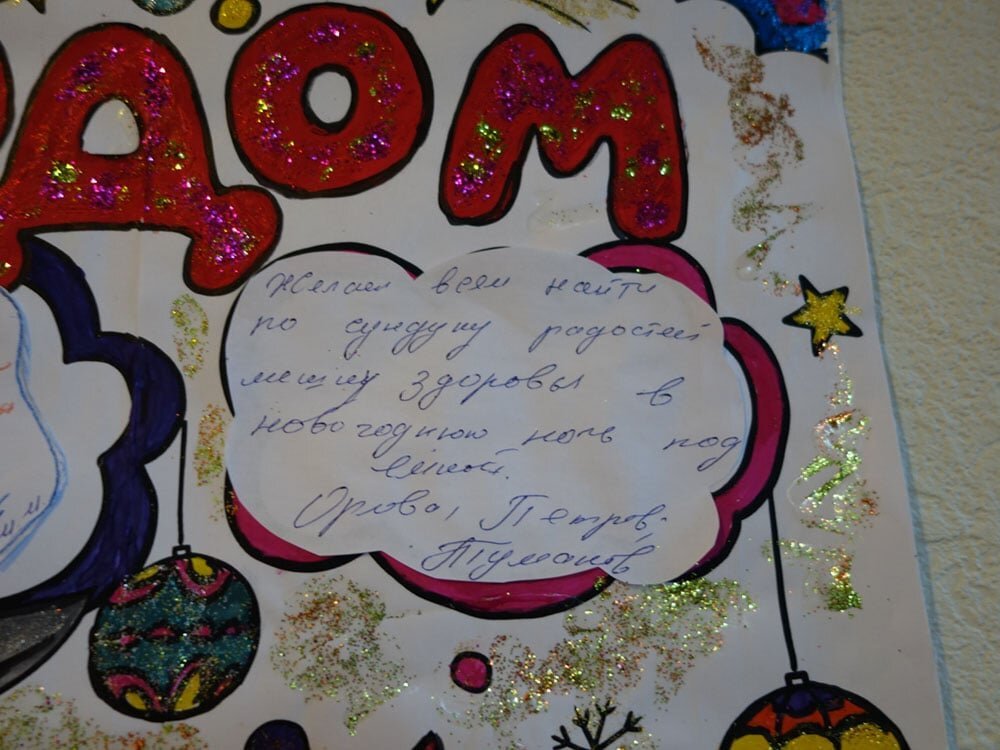 ДОМ
Желаем всем найти
по сундуку радостей
мешку здоровья в
новогоднюю ночь под
ёлкой.
Орлова, Петров,
Туманов